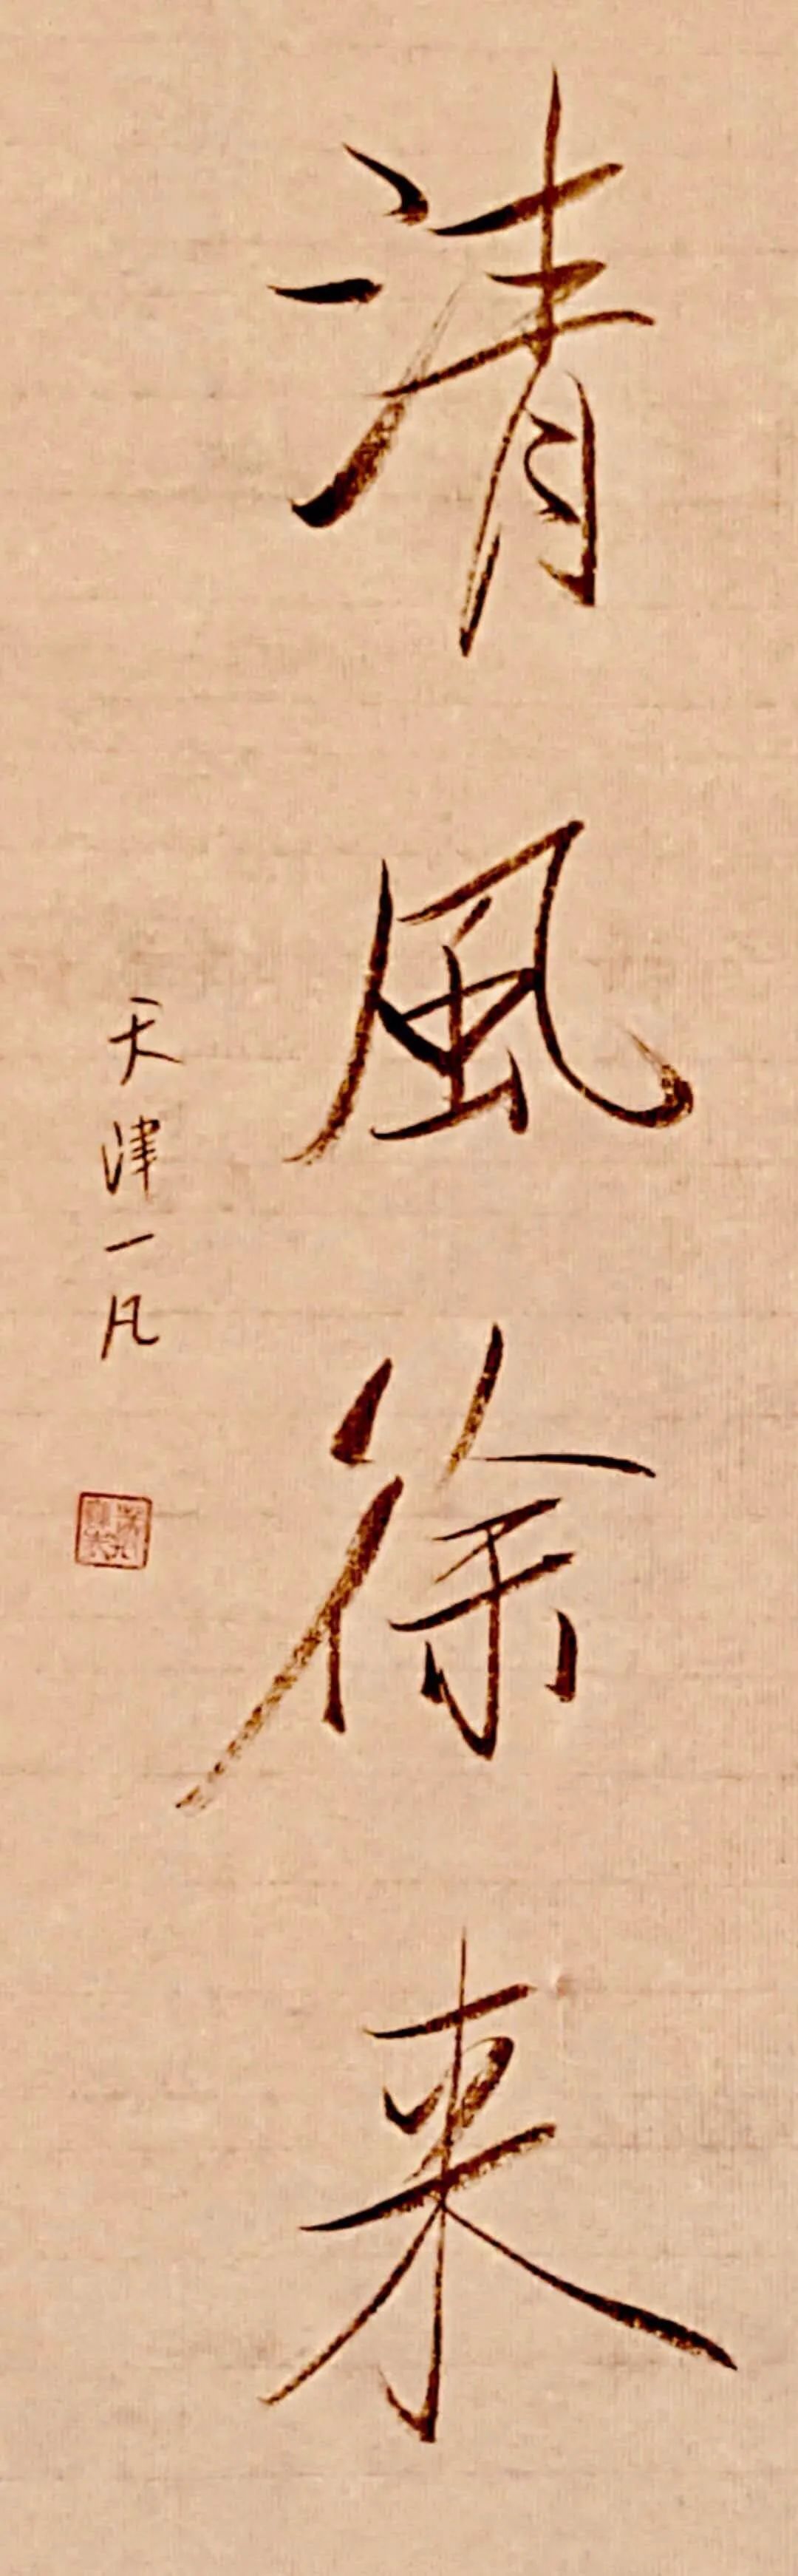 清風徐来
天津一凡